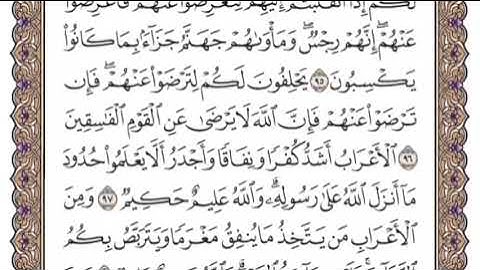 لَكُمْ إِذَا ٱنقَلَبْتُمْ إِلَيْهِمْ لِتُعْرِضُوا۟ عَنْهُمْ فَأَعْرِضُوا۟
عَنْهُمْ إِنَّهُمْ رِجْسٌ وَمَأْوَىٰهُمْ جَهَنَّمُ جَزَآءًۢ بِمَا كَانُوا۟
يَكْسِبُونَ ٩٥ يَحْلِفُونَ لَكُمْ لِتَرْضَوْا۟ عَنْهُمْ فَإِن
تَرْضَوْا۟ عَنْهُمْ فَإِنَّ ٱللَّهَ لَا يَرْضَىٰ عَنِ ٱلْقَوْمِ ٱلْفَٰسِقِينَ
٩٦ ٱلْأَعْرَابُ أَشَدُّ كُفْرًا وَنِفَاقًا وَأَجْدَرُ أَلَّا يَعْلَمُوا۟ حُدُودَ
مَآ أَنزَلَ ٱللَّهُ عَلَىٰ رَسُولِهِۦ وَٱللَّهُ عَلِيمٌ حَكِيمٌ ٩٧ وَمِنَ
ٱلْأَعْرَابِ مَن يَتَّخِذُ مَا يُنفِقُ مَغْرَمًا وَيَتَرَبَّصُ بِكُمُ